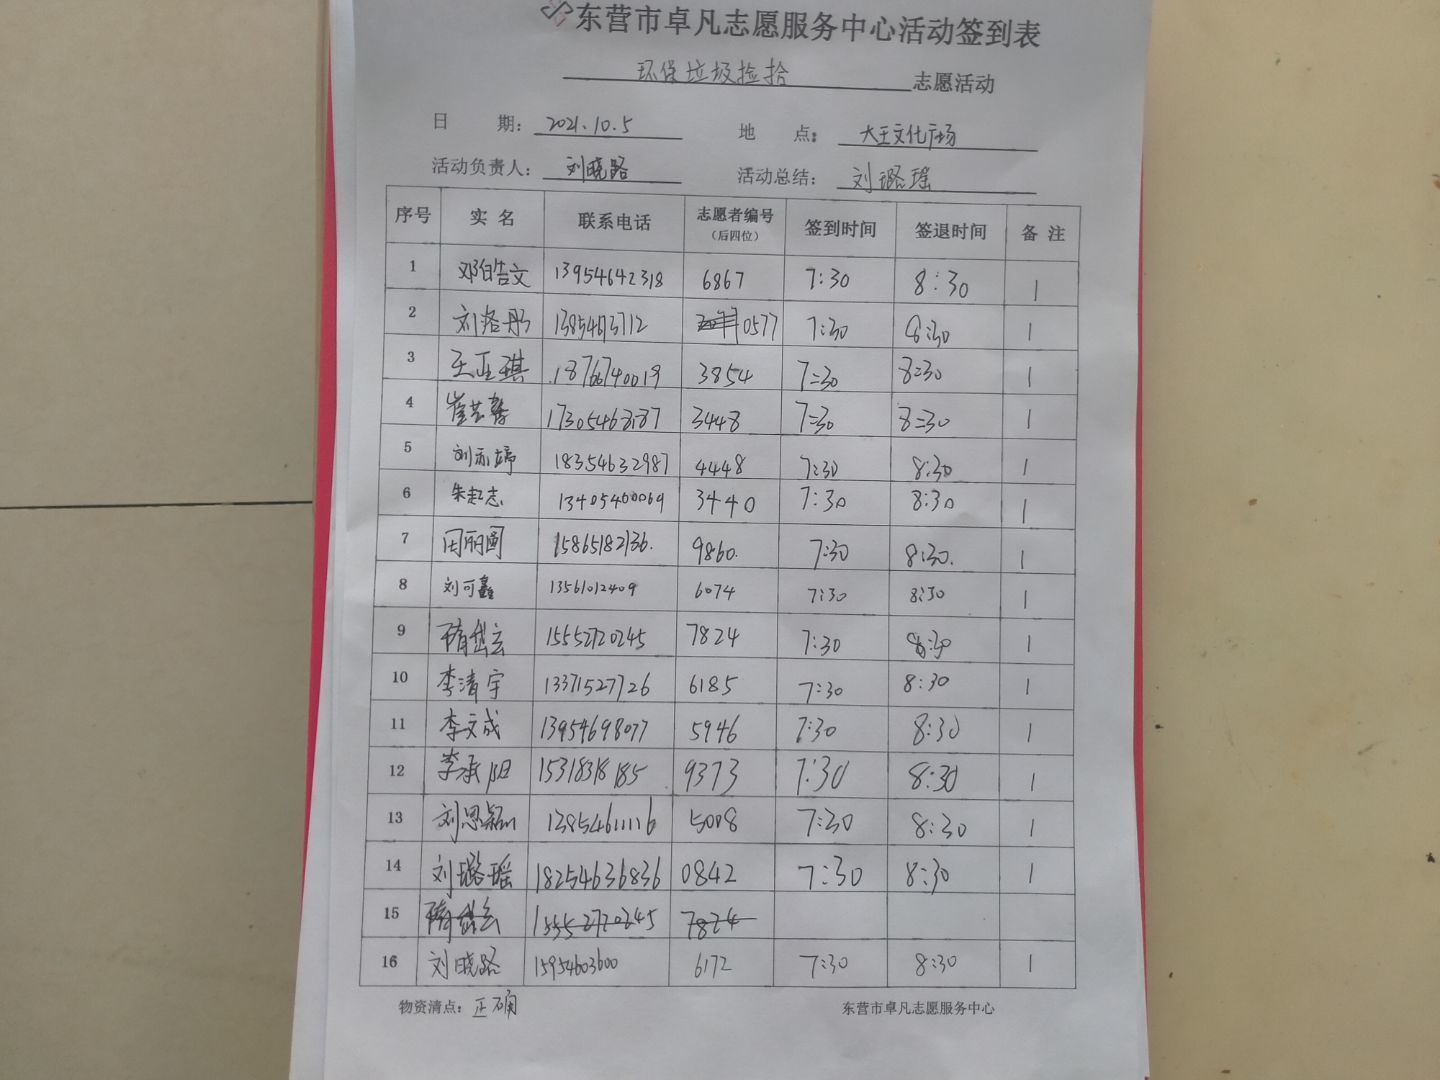 东营市卓凡志愿服务中心活动签到表
环保垃圾捡拾 志愿活动
日 期： 2021.10.5 地 点： 大王文化广场
活动负责人： 刘晓路 活动总结： 刘璐瑶
序号 实 名 联系电话 志愿者编号（后四位） 签到时间 签退时间 备 注
1 邓皓文 13954642318 6867 7:30 8:30 1
2 刘洛彤 0577 7:30 8:30 1
3 王亚琪 18766740019 3854 7:30 8:30 1
4 3448 7:30 8:30 1
5 刘亦婷 18354632987 4448 7:30 8:30 1
6 朱起志 13405460069 3440 7:30 8:30 1
7 15865182136. 9860. 7:30 8:30. 1
8 刘可鑫 13561012409 6074 7:30 8:30 1
9 隋岱云 15552720245 7824 7:30 8:30 1
10 李清宇 13371527726 6185 7:30 8:30 1
11 李文成 13954698077 5946 7:30 8:30 1
12 李承阳 15318318185 9373 7:30 8:30 1
13 刘恩颖 13854611116 5008 7:30 8:30 1
14 刘璐瑶 18254636836 0842 7:30 8:30 1
15 隋岱云 15552720245 7824
16 刘晓路 15954603600 6172 7:30 8:30 1
物资清点： 正确 东营市卓凡志愿服务中心